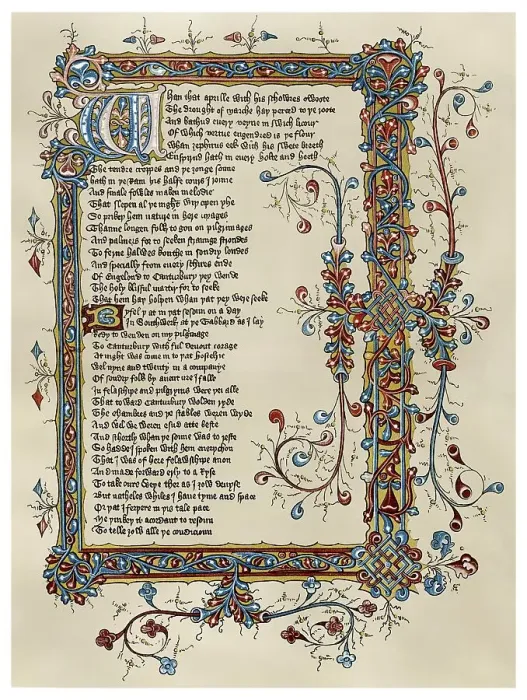 Whan that aprille with his schowres swoote
The drought of marche hap perced to ye roote
And bathud every veyne in swich licour
Of which vertue engendred is ye flour
Whan zephirus eek with his swete breeth
Enspirud hath in every holte and heeth
The tendre croppes and ye yonge sonne
hath in ye ram his halfe cours i ronne
And smale fowles maken melodie
That slepen al ye night wiþ open yhe
So prikeþ hem nature in here corages
Thanne longen folk to gon on pilgrimages
And palmers for to seeken straunge strondes
To ferne halwes kouthe in sondry londes
And specially from every schires ende
Of Engelond to Caunturbury þey wende
The holy blisful martir for to seeke
That hem haþ holpen whan þat þey were seeke
Byfel þt in þat sesoun on a day
In Southwerk at þe Tabbard as I lay
Redy to wenden on my pilgrimage
To Cauntturbury with ful devout corage
At night was come in to þat hostelrie
Wel nyne and twenty in a companye
Of sondry folk by aventure i falle
In felaschipe and pilgryms were þei alle
That toward Canturbury wolden ryde
The chambres and þe stables weren wyde
And wel we weren esud atte beste
And schortly whan þe sonne was to reste
So hadde I spoken with hem everychon
That I was of here felawschipe anon
And made forward erly to aryse
To take oure weye ther as I yow devyse
But natheles whiles I have tyme and space
Or þat I ferþere in þis tale pace
Me þinkeþ it acordant to resoun
To telle yow alle þe condicioun